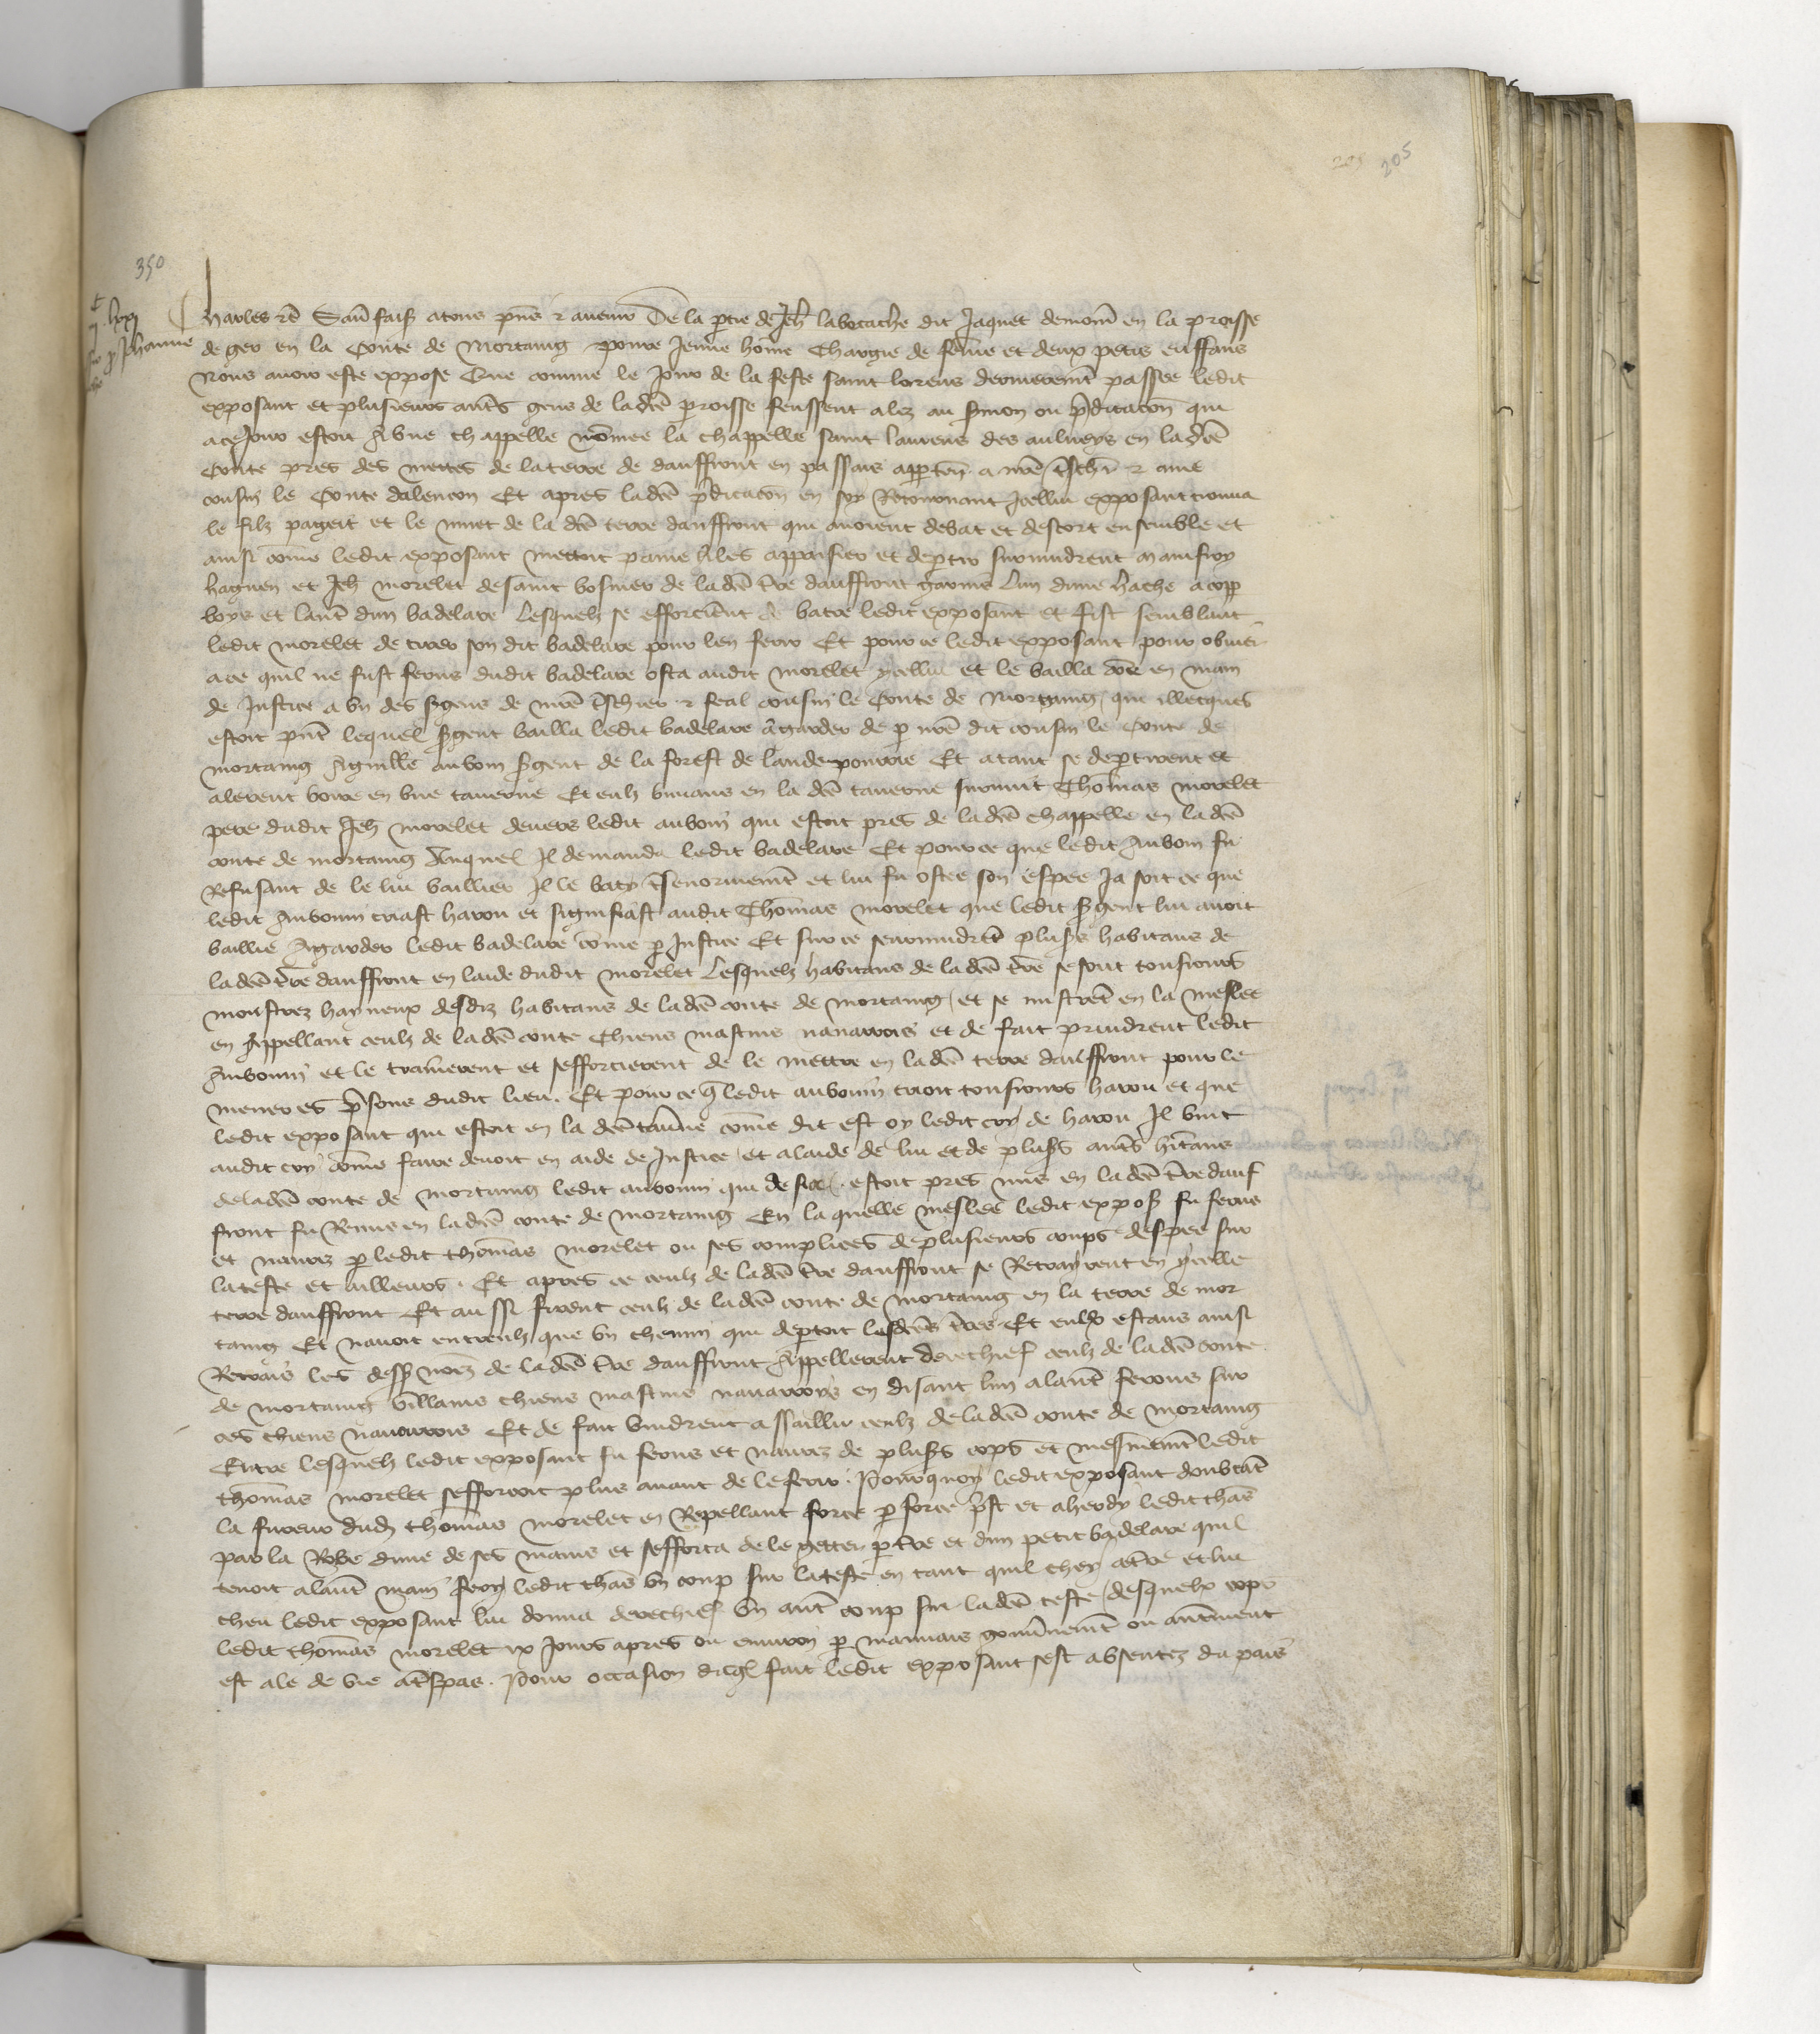 205
350
Charles etc Savoir faisons a tous pns et avenir De la partie de Jeh labocache dit Jaquet demour en la proisse
de ger en la Conte de Mortaing povre Jenne home Chargie de feme et deux petis enffans
Nous avoir este expose Que comme le Jour de la feste saint lorens derrierement passee ledit
exposant et plusieurs autes gens de ladce proisse feussent alez au smon ou pdicacon qui
a ce Jour estoit A une chappelle nomee la chappelle saint laurens des aulneys en ladce
Conte pres des mettes de la terre de danffront en passais apparten a nre tschr et ame
cousin le Conte dalencon Et apres ladce pdicacon en soy Retournant Icellui exposant trouva
le filz pageit et le nuet de la dce terre danffront qui avoient debat et descort ensemble et
ainsi come ledit exposant mettoit paine A les appaisier et deptir survindrent mainfroy
haguen et Jeh morelet de saint bosmer de ladce tre danffront garnis Lun dune hache a copp
boys et laut dun badelare Lesquelz se efforcient de batre ledit exposant et fist semblant
ledit morelet de tirer son dit badelare pour len ferir Et pour ce ledit exposant pour obvier
a ce quil ne fust ferus dudit badelare osta audit morelet ycellui et le bailla come en main
de Justice a un des sgens de nre tschier et feal cousin le Conte de Mortaing qui illecques
estoit pnt lequel sgent bailla ledit badelare a garder de p nre dit cousin le Conte de
mortaing Aguille auvoin sgent de la forest de landepourrie Et atant se deptirent et
alerent boire en une taverne Et eulx buvans en la dce taverne survint Thomas morelet
pere dudit Jeh morelet devers ledit auvoin qui estoit pres de ladce chappelle en ladce
conte de mortaing Auquel Il demanda ledit badelare Et pour ce que ledit Auvoin fu
Refusant de le lui baillier Il le baty tsenormement et lui fu ostee son espee Ja soit ce que
ledit Auvoin criast harou et signifiast audit Thomas morelet que ledit sgent lui avoit
baillie A garder ledit badelare come p Justice Et sur ce seurvindrent plus habitans de
ladce tre danffront en laide dudit morelet Lesquelz habitans de ladce tre se sont tousiours
monstrez hayneux desdiz habitans de ladce conte de mortaing et se mistrent en la meslee
en Appellant ceulz de ladce conte Chiens mastins navarrois et de fait prindrent ledit
Auvoin et le trainerent et sefforcierent de le mettre en ladce terre danffront pour le
mener es psons dudit lieu. Et pour ce q ledit auvoin crioit tousiours harou et que
ledit exposant qui estoit en la dce taverne come dit est oy ledit cry de harou Il vint
audit cry come faire devoit en aide de Justice et a laide de lui et de plus autes hitans
de ladce conte de mortaing ledit auvoin qui de fait estoit pres mis en ladce tre danf
front fu Remis en ladce conte de mortaing En laquelle meslee ledit expos fu ferus
et navrez p ledit thomas morelet ou ses complices de plusieurs coups despee sur
la teste et ailleurs. Et apres ce ceulz de ladce tre danffront se Retrayrent en ycelle
terre danffront Et aussi firent ceulz de ladce conte de mortaing en la terre de mor
taing Et navoit entreulz que un chemin qui deptoit lesdces tres Et eulx estans ainsi
Retrais les dess noez de ladce tre danffront Appellerent derechief ceulz de ladce conte
de mortaing villains chiens mastins navarroys en disant lun a laut ferons sur
ces chiens navarrois Et de fait vindrent assaillir ceulz de ladce conte de mortaing
Entre lesquelz ledit exposant fu ferus et navrez de plus cops et mesmement ledit
thomas morelet sefforcoit plus avant de le ferir. Pourquoy ledit exposant doubtant
la fureur dud thomas morelet en Repellant force p force pst et aherdy ledit thas
par la Robe dune de ses mains et sefforca de le getter p tre et dun petit badelare quil
tenoit a laut main fery ledit thas un coup sur la teste en tant quil chey a tre et lui
cheu ledit exposant lui donna derechief un aut coup sur ladce teste desquelx cops
ledit thomas morelet ix Jours apres ou environ p mauvais gouvnement ou autement
est ale de vie a tspas. Pour occasion duql fait ledit exposant sest absentez du pais